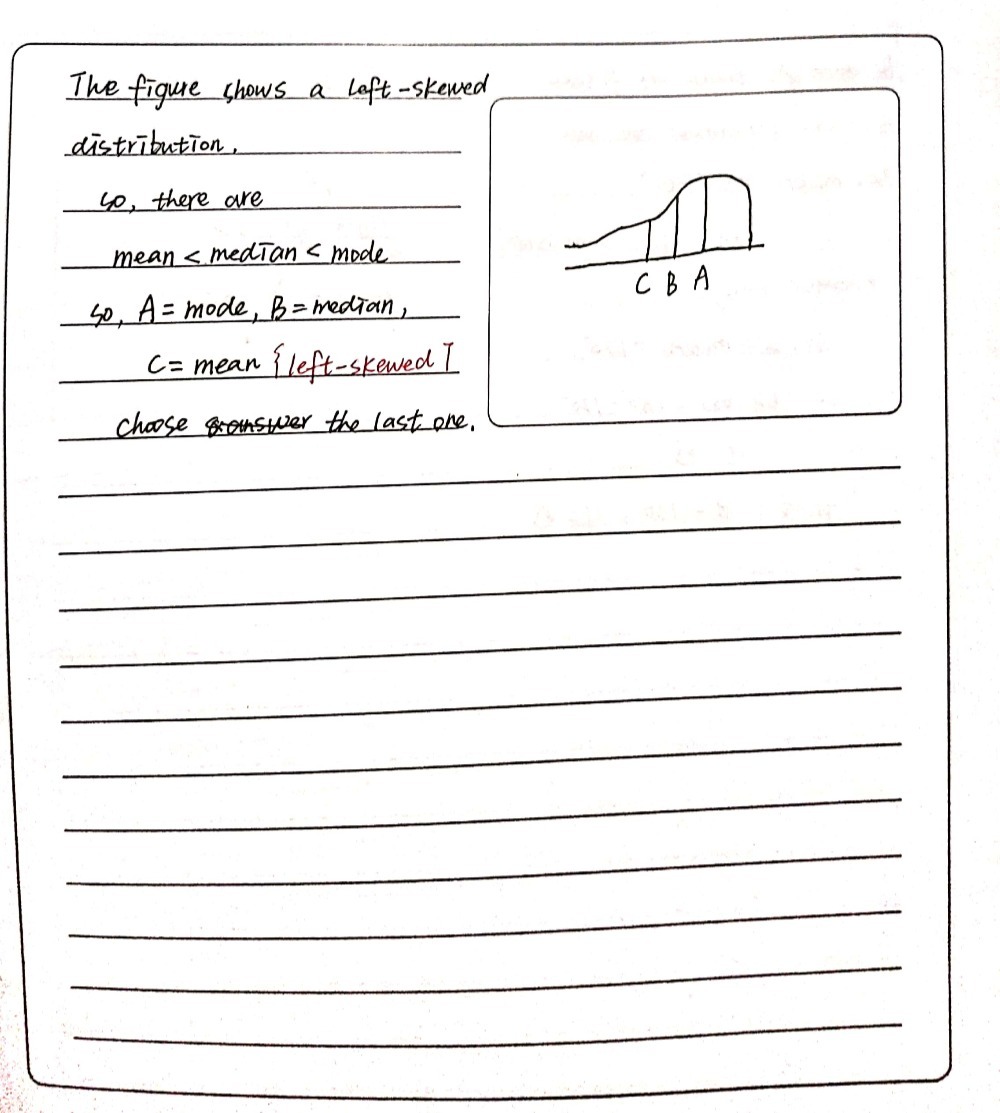 The figure shows a left-skewed
distribution.
so, there are
mean < median < mode
so, A = mode, B = median,
C = mean {left-skewed]
choose answer the last one.
C B A